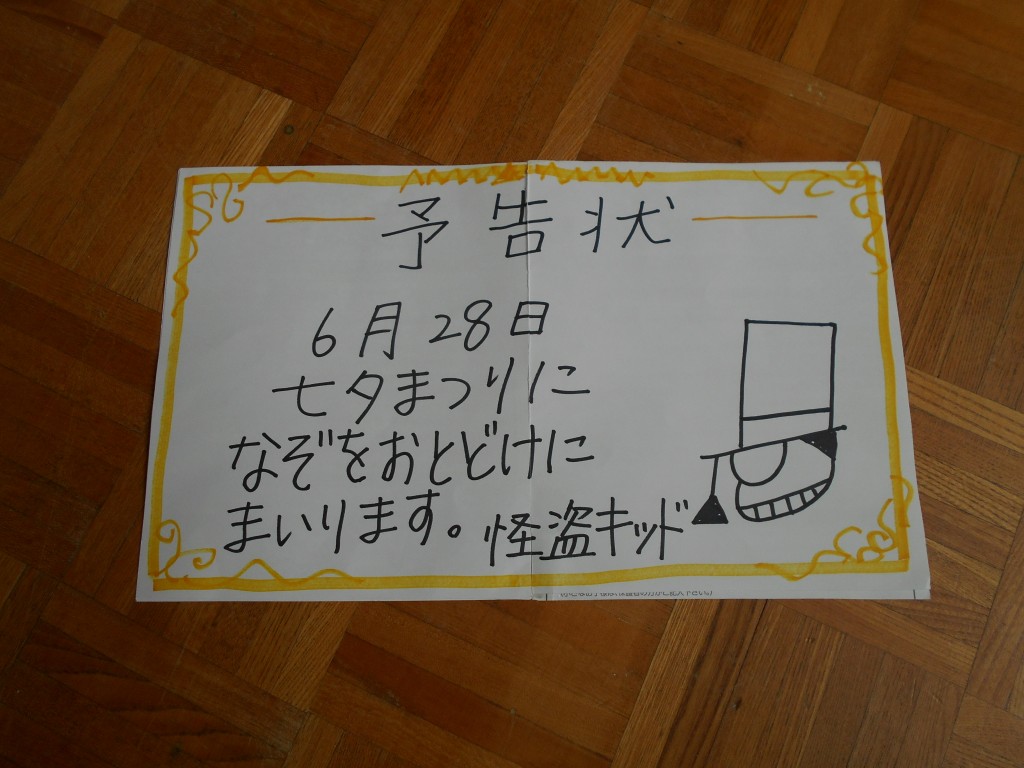 予告状
6月28日
七夕まつりに
なぞをおとどけに
まいります。怪盗キッド